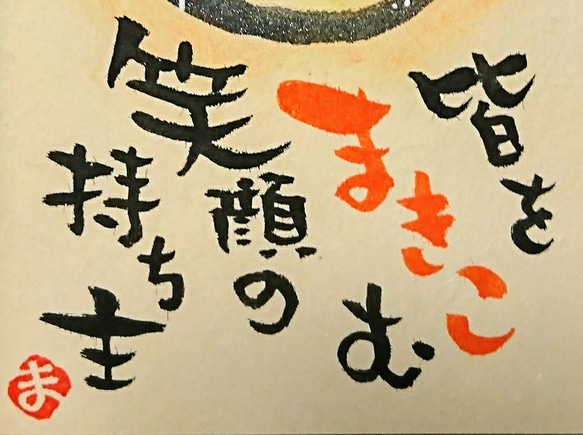 皆を
まきこむ
笑顔の
持ち主
ま